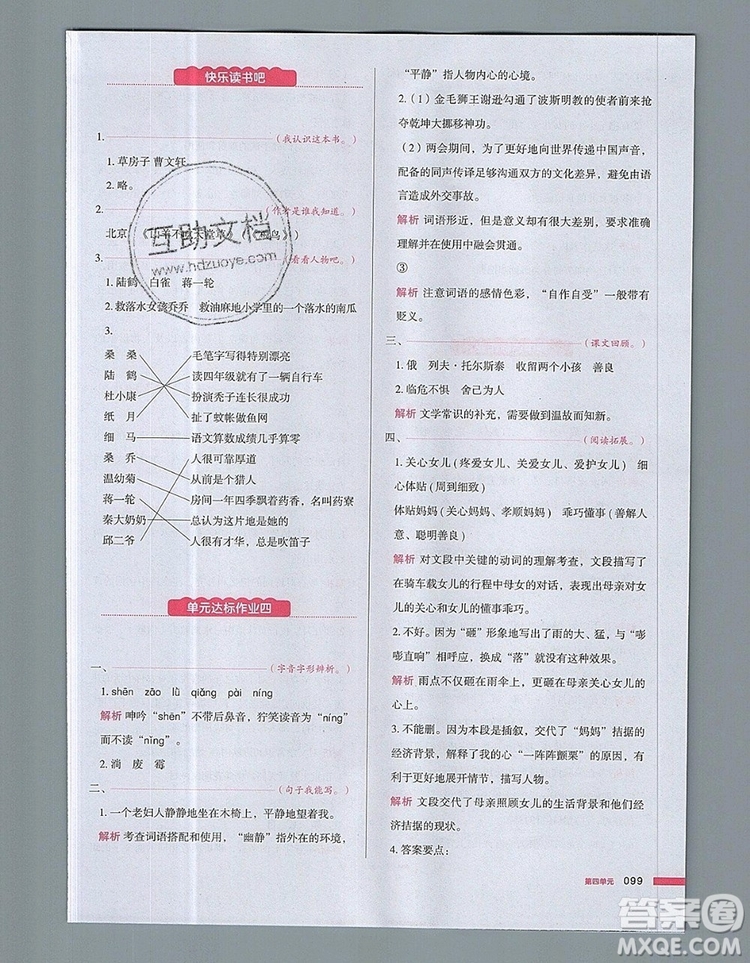 快乐读书吧
1.（我认识这本书。）
1. 草房子 曹文轩
2. 略。
2.（作者是谁我知道。）
北京
3.（看看人物吧。）
1. 陆鹤 白雀 蒋一轮
2. 救落水女孩乔乔 救油麻地小学里的一个落水的南瓜
3.
桑 桑 毛笔字写得特别漂亮
陆 鹤 读四年级就有了一辆自行车
杜小康 扮演秃子连长很成功
纸 月 扯了蚊帐做鱼网
细 马 语文算数成绩几乎算零
桑 乔 人很可靠厚道
温幼菊 从前是个猎人
蒋一轮 房间一年四季飘着药香，名叫药寮
秦大奶奶 总认为这片地是她的
邱二爷 人很有才华，总吹笛子
单元达标作业四
一、（字音字形辨析。）
1. shēn zāo lǜ qiāng pài níng
解析 呻吟“shēn”不带后鼻音，狞笑读音为“níng”
而不读“nǐng”。
2. 淌 废 霉
二、（句子我能写。）
1. 一个老妇人静静地坐在木椅上，平静地望着我。
解析 考查词语搭配和使用，“幽静”指外在的环境，
“平静”指人物内心的心境。
2.（1）金毛狮王谢逊勾通了波斯明教的使者前来抢
夺乾坤大挪移神功。
（2）两会期间，为了更好地向世界传递中国声音，
配备的同声传译足够沟通双方的文化差异，避免由语
言造成外交事故。
解析 词语形近，但意义却有很大差别，要求大家
能够在使用中融会贯通。
③
解析 注意词语的感情色彩，“自作自受”一般带有
贬义。
三、（课文回顾。）
1. 俄 列夫·托尔斯泰 收留两个小孩 善良
2. 临危不惧 舍己为人
解析 文学常识的补充，需要做到温故而知新。
四、（阅读拓展。）
1. 关心女儿（疼爱女儿、关爱女儿、爱护女儿） 细
心体贴（周到细致）
体贴妈妈（关心妈妈、孝顺妈妈） 乖巧懂事（善解人
意、聪明善良）
解析 对文段中关键的动词的理解考查，文段写了
在骑车载女儿的行程中母女的对话，表现出母亲对女
儿的关心和女儿的懂事乖巧。
2. 不好。因为“砸”形象地写出了雨的大、猛，与“嘭
嘭直响”相呼应，换成“落”就没有这种效果。
解析 雨点不仅砸在雨伞上，更砸在母亲关心女儿的
心上。
3. 不能删。因为本段是插叙，交代了“妈妈”拮据的
经济背景，解释了我的心“一阵阵颤栗”的原因，有
利于更好地展开情节，描写人物。
解析 文段交代了母亲照顾女儿的生活背景和他们经
济拮据的现状。
4. 答案要点：
第四单元 099
互助文档
www.hdzuoye.com
答案圈
MXQE.COM